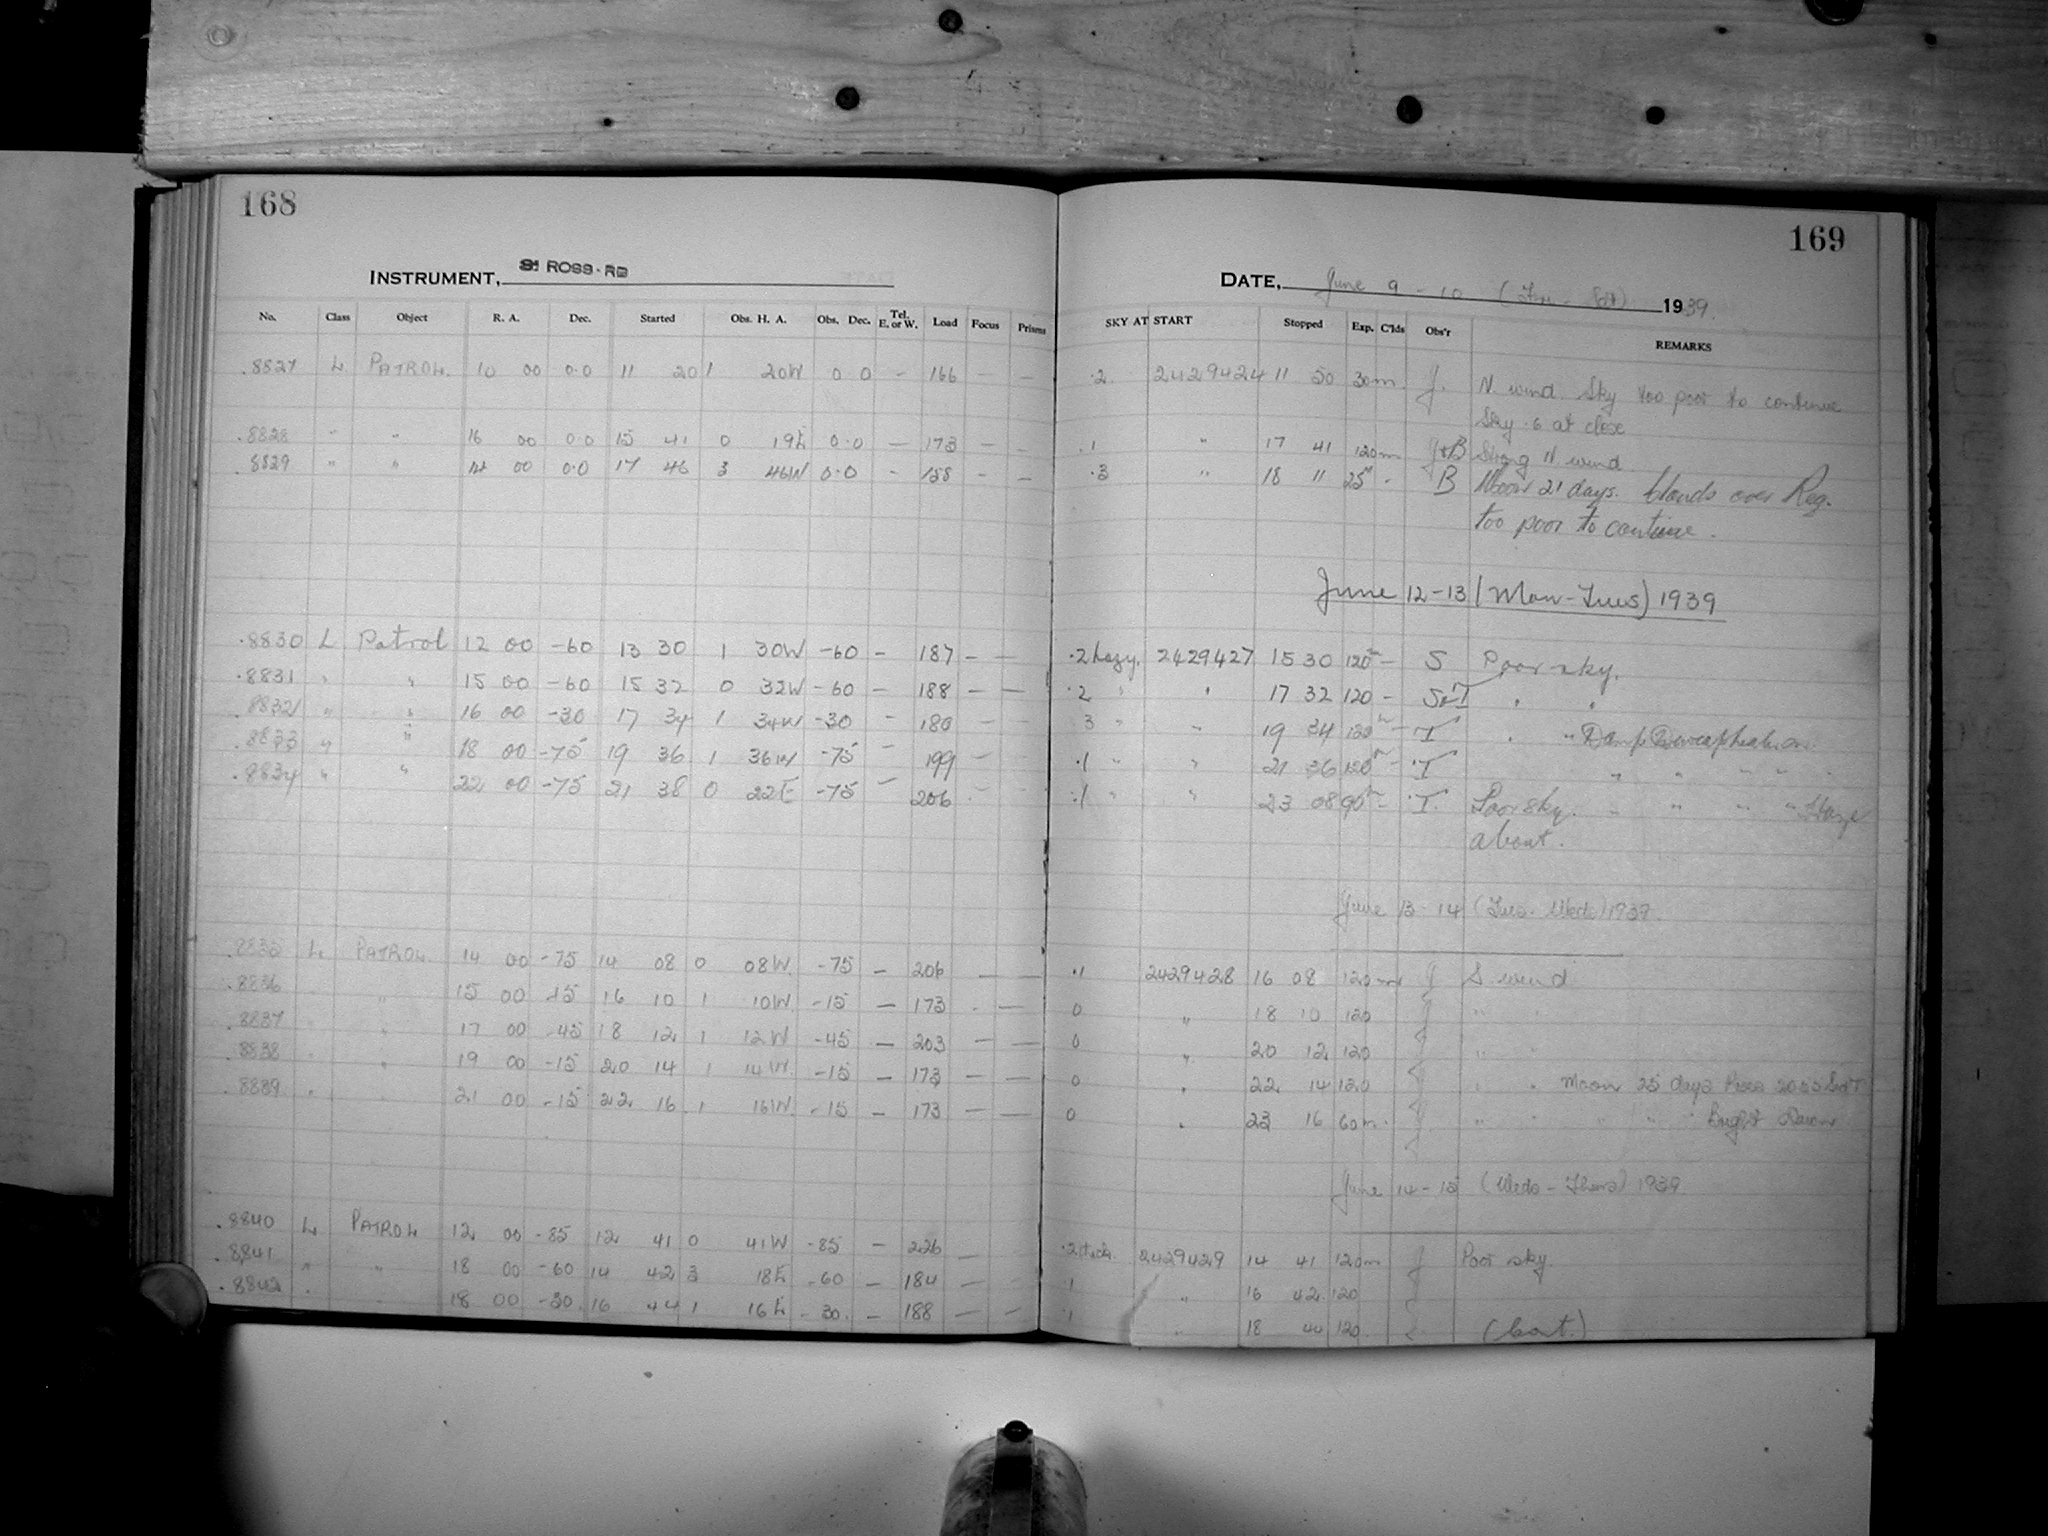 168
INSTRUMENT, ROSS-RB
No. Class Object R. A. Dec. Started Obs. H. A. Obs. Dec. Tel. E. or W. Load Focus Prisms
.8827 L PATROL. 10 00 0.0 11 20 1 20W 0 0 - 166 - -
.8828 " " 16 00 0.0 15 41 0 19E 0.0 - 173 - -
.8829 " " 14 00 0.0 17 46 3 46W 0.0 - 158 - -
.8830 L Patrol 12 00 -60 13 30 1 30W -60 - 187 - -
.8831 " " 15 00 -60 15 32 0 32W -60 - 188 - -
.8832 " " 16 00 -30 17 34 1 34W -30 - 180 - -
.8833 " " 18 00 -75 19 36 1 36W -75 - 199 - -
.8834 " " 22 00 -75 21 38 0 22E -75 - 206 - -
.8835 L PATROL 14 00 -75 14 08 0 08W. -75 - 206 - -
.8836 " 15 00 -15 16 10 1 10W. -15 - 173 - -
.8837 " 17 00 -45 18 12 1 12W -45 - 203 - -
.8838 " 19 00 -15 20 14 1 14W. -15 - 173 - -
.8839 " 21 00 -15 22 16 1 16W. -15 - 173 - -
.8840 L PATROL 12 00 -85 12 41 0 41W -85 - 226 -
.8841 " " 18 00 -60 14 42 3 18E -60 - 184 -
.8842 " 18 00 -30 16 44 1 16E -30. - 188 - -
169
DATE, June 9 - 10 1939.
SKY AT START Stopped Exp. C'lds Obs'r REMARKS
.2 2429424 11 50 30m. J. N. wind. Sky too poor to continue
Sky .6 at close
.1 " 17 41 120m J+B Strong N. wind
.3 " 18 11 25m - B Moon 21 days. Clouds over Reg.
too poor to continue.
June 12-13 (Mon-Tues) 1939
.2 hazy. 2429427 15 30 120m - S Poor sky.
.2 " " 17 32 120 - S+T " "
3 " " 19 34 120m - T " " Damp
.1 " " 21 36 120m - T " " " "
.1 " " 23 08 90m - T. Poor sky. " " " " Haze
about.
June 13-14 (Tues. Weds) 1939.
.1 2429428 16 08 120m J S. wind
0 " 18 10 120 J " "
0 " 20 12 120 J " "
0 " 22 14 120 J " " Moon 25 days
0 " 23 16 60m. J " " " " Bright
June 14-15 (Weds - Thurs) 1939.
2429429 14 41 120m J Poor sky.
1 " 16 42 120
.1 " 18 44 120
(Cont.)